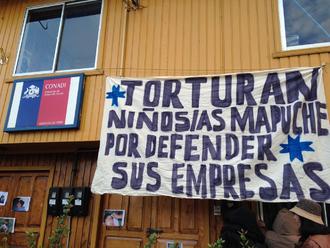 CONADI
TORTURAN
NIÑOS/AS MAPUCHE
POR DEFENDER
SUS EMPRESAS